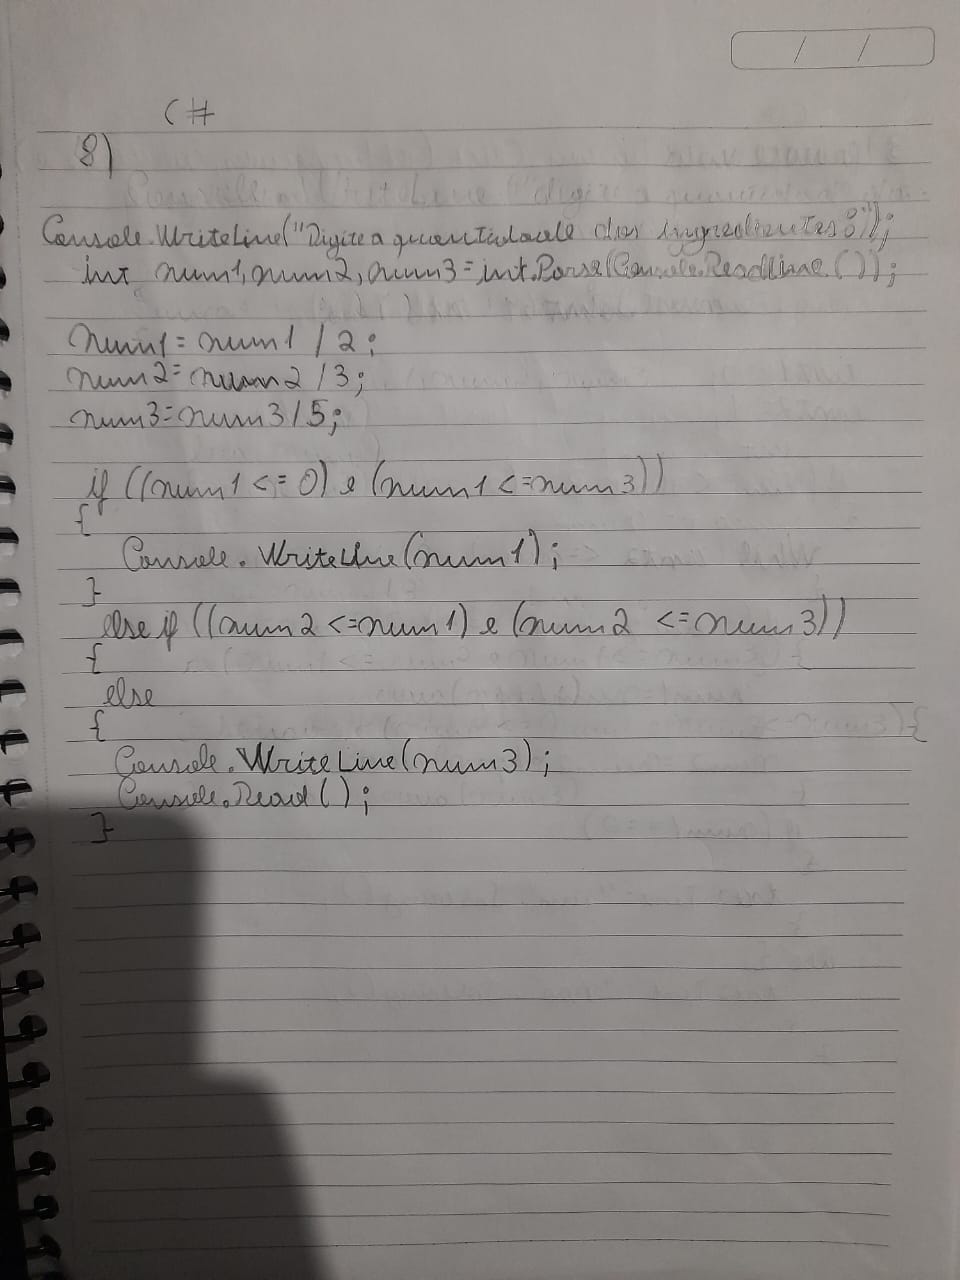 / /
C#
8)
Console.WriteLine("Digite a quantidade dos ingredientes:");
int num1, num2, num3 = int.Parse(Console.Readline());
num1 = num1 / 2;
num2 = num2 / 3;
num3 = num3 / 5;
if ((num1 <= 0) e (num1 <= num3))
{
Console.WriteLine(num1);
}
else if ((num2 <= num1) e (num2 <= num3))
{
else
{
Console.WriteLine(num3);
Console.Read();
}